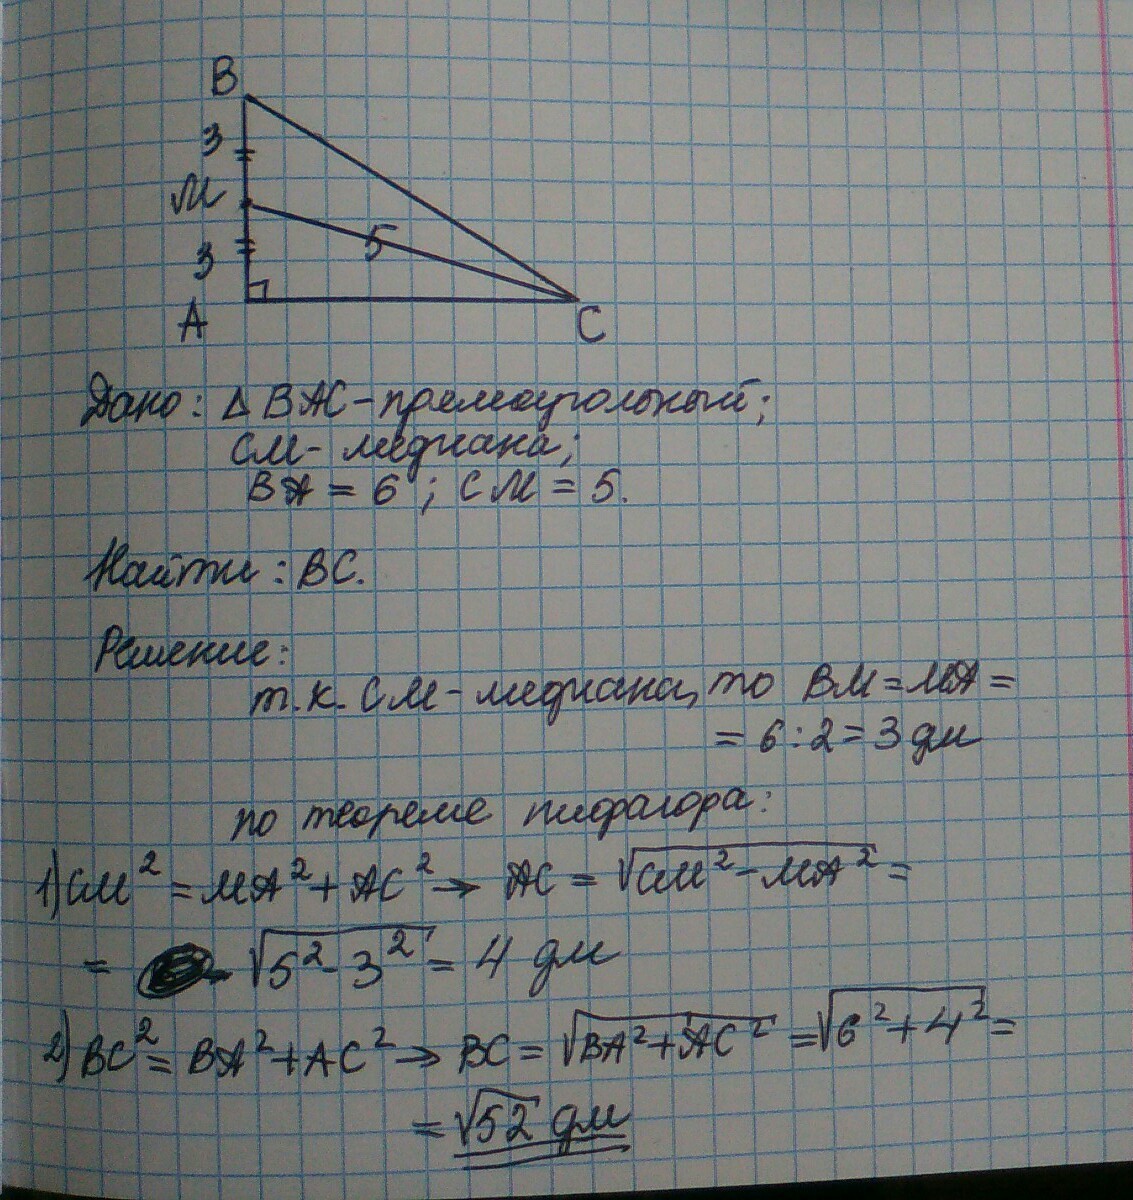 B
3
M
3
5
A
C
Дано: Δ BAC - прямоугольный;
CM - медиана;
BA = 6 ; CM = 5.
Найти: BC.
Решение:
т.к. CM - медиана, то BM = MA =
= 6 : 2 = 3 дм
по теореме пифагора:
1) CM² = MA² + AC² → AC = √CM² - MA² =
= √5² - 3² = 4 дм
2) BC² = BA² + AC² → BC = √BA² + AC² = √6² + 4² =
= √52 дм